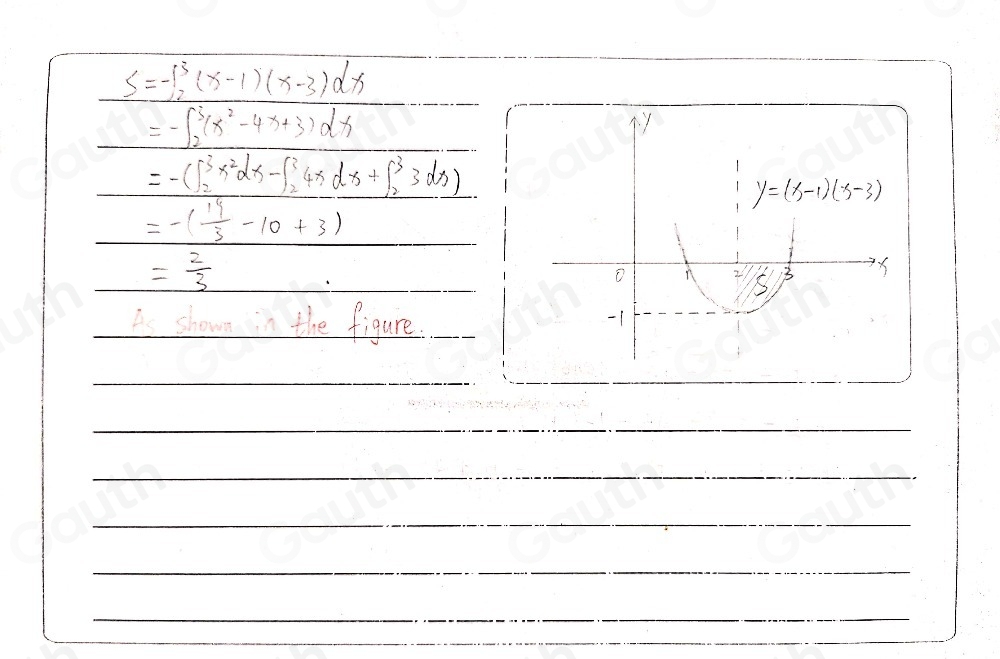 S=-∫₂³(x-1)(x-3)dx
=-∫₂³(x²-4x+3)dx
=-(∫₂³x²dx-∫₂³4xdx+∫₂³3dx)
=-(19/3-10+3)
=2/3.
As shown in the figure.
y
y=(x-1)(x-3)
0 1 2 3 x
S
-1
Gauth